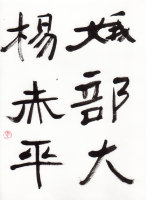 娥部大
楊未平